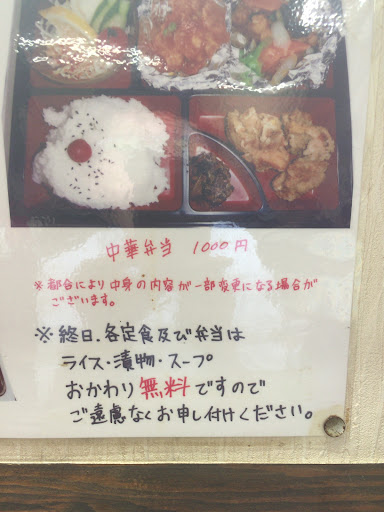 中華弁当 1000円
※都合により中身の内容が一部変更になる場合が
ございます。
※終日.各定食及び弁当は
ライス・漬物・スープ
おかわり無料ですので
ご遠慮なくお申し付けください。